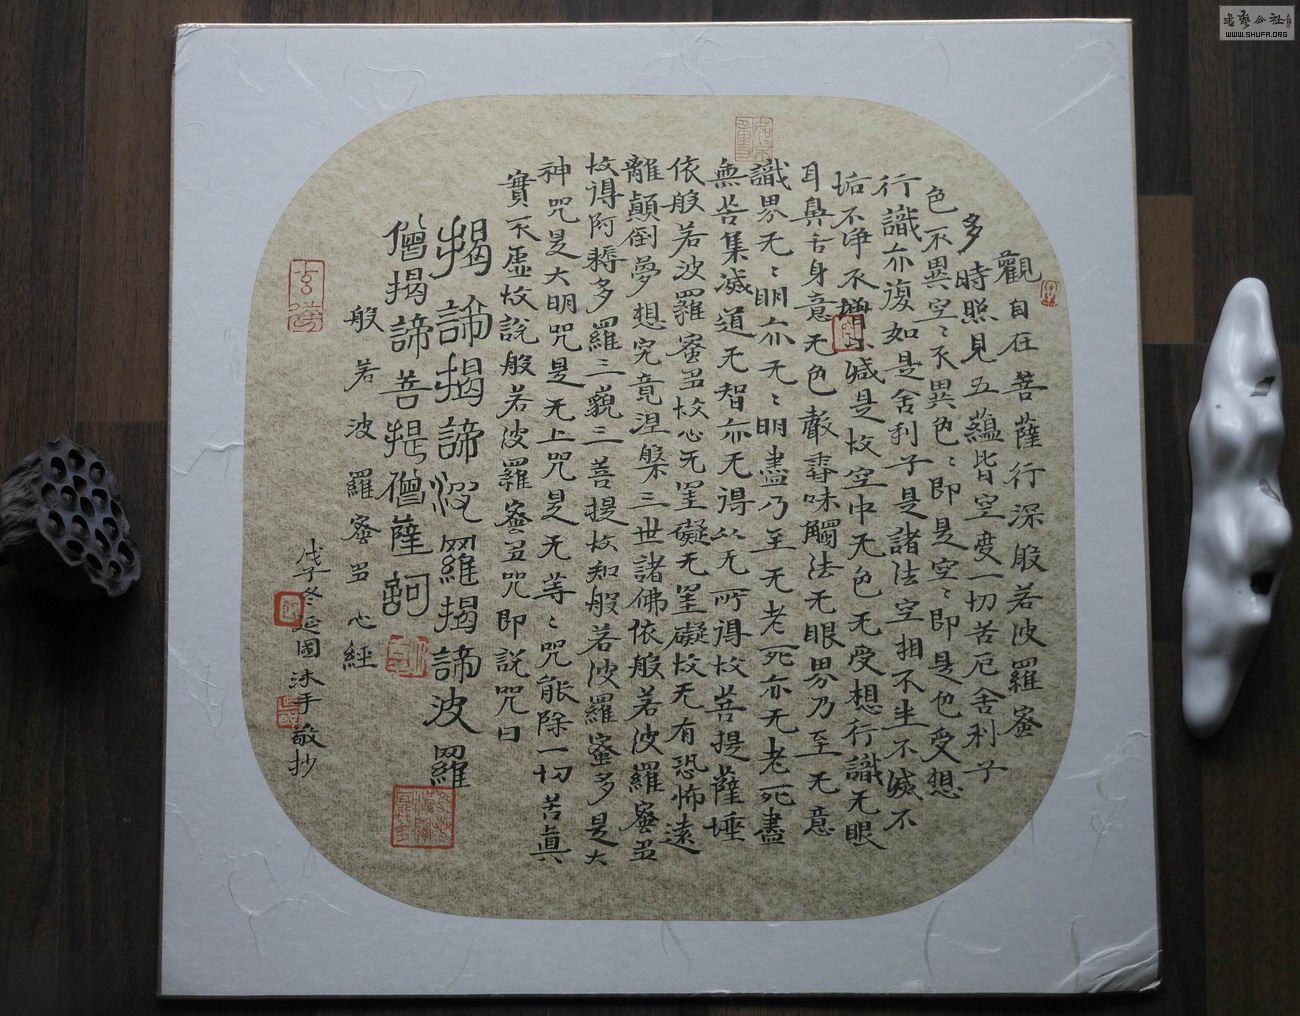 觀自在菩薩行深般若波羅蜜
多時照見五蘊皆空度一切苦厄舍利子
色不異空〻不異色〻即是空〻即是色受想
行識亦復如是舍利子是諸法空相不生不滅不
垢不净不增不減是故空中无色无受想行識无眼
耳鼻舌身意无色聲香味觸法无眼界乃至无意
識界无〻明亦无〻明盡乃至无老死亦无老死盡
無苦集滅道无智亦无得以无所得故菩提薩埵
依般若波羅蜜多故心无罣礙无罣礙故无有恐怖遠
離顛倒夢想究竟涅槃三世諸佛依般若波羅蜜多
故得阿耨多羅三藐三菩提故知般若波羅蜜多是大
神咒是大明咒是无上咒是无等〻咒能除一切苦真
實不虛故說般若波羅蜜多咒即說咒曰
揭諦揭諦波羅揭諦波羅
僧揭諦菩提僧薩訶
般若波羅蜜多心經
戊子冬延國沐手敬抄
WWW.SHUFA.ORG